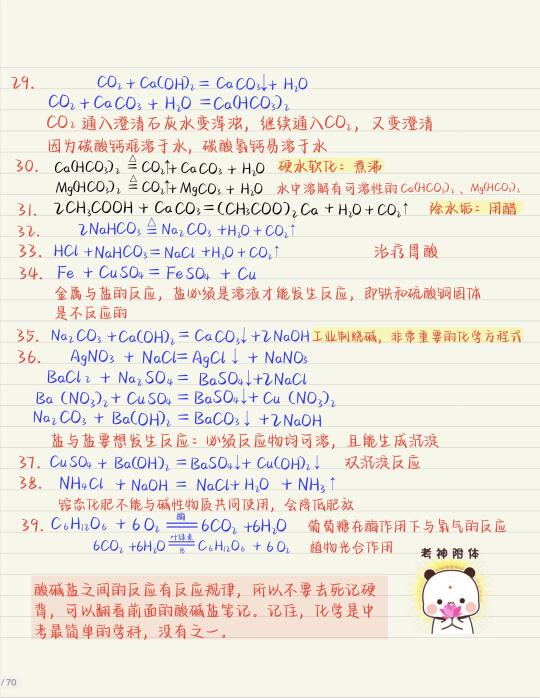 29. CO₂ + Ca(OH)₂ = CaCO₃↓ + H₂O
CO₂ + CaCO₃ + H₂O = Ca(HCO₃)₂
CO₂ 通入澄清石灰水变浑浊，继续通入CO₂，又变澄清
因为碳酸钙难溶于水，碳酸氢钙易溶于水
30. Ca(HCO₃)₂ ≜ CO₂↑ + CaCO₃ + H₂O 硬水软化：煮沸
Mg(HCO₃)₂ ≜ CO₂↑ + MgCO₃ + H₂O 水中溶解有可溶性的Ca(HCO₃)₂、Mg(HCO₃)₂
31. 2CH₃COOH + CaCO₃ = (CH₃COO)₂Ca + H₂O + CO₂↑ 除水垢：用醋
32. 2NaHCO₃ ≜ Na₂CO₃ + H₂O + CO₂↑
33. HCl + NaHCO₃ = NaCl + H₂O + CO₂↑ 治疗胃酸
34. Fe + CuSO₄ = FeSO₄ + Cu
金属与盐的反应，盐必须是溶液才能发生反应，即铁和硫酸铜固体
是不反应的
35. Na₂CO₃ + Ca(OH)₂ = CaCO₃↓ + 2NaOH 工业制烧碱，非常重要的化学方程式
36. AgNO₃ + NaCl = AgCl↓ + NaNO₃
BaCl₂ + Na₂SO₄ = BaSO₄↓ + 2NaCl
Ba(NO₃)₂ + CuSO₄ = BaSO₄↓ + Cu(NO₃)₂
Na₂CO₃ + Ba(OH)₂ = BaCO₃↓ + 2NaOH
盐与盐要想发生反应：必须反应物均可溶，且能生成沉淀
37. CuSO₄ + Ba(OH)₂ = BaSO₄↓ + Cu(OH)₂↓ 双沉淀反应
38. NH₄Cl + NaOH = NaCl + H₂O + NH₃↑
铵态化肥不能与碱性物质共同使用，会降低肥效
39. C₆H₁₂O₆ + 6O₂ =酶= 6CO₂ + 6H₂O 葡萄糖在酶作用下与氧气的反应
6CO₂ + 6H₂O =叶绿素/光= C₆H₁₂O₆ + 6O₂ 植物光合作用
考神附体
酸碱盐之间的反应有反应规律，所以不要去死记硬
背，可以翻看前面的酸碱盐笔记。记住，化学是中
考最简单的学科，没有之一。
/ 70